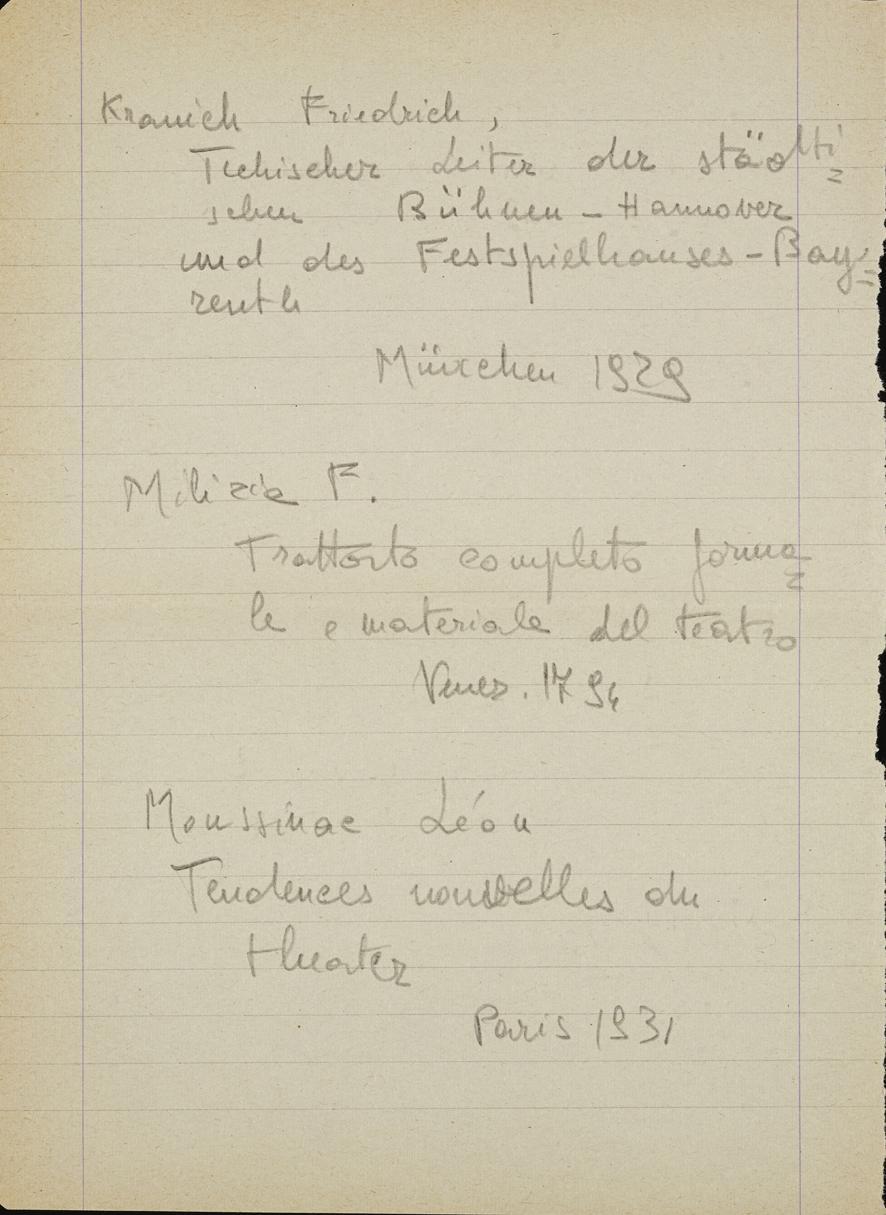 Kranich Friedrich,
Techischer Leiter der städti=
schen Bühnen – Hannover
und des Festspielhauses – Bay=
reuth
München 1929
Milizia F.
Trattato completo forma=
le e materiale del teatro
Venez. 1794
Moussinac Léon
Tendences nouvelles du
theater
Paris 1931